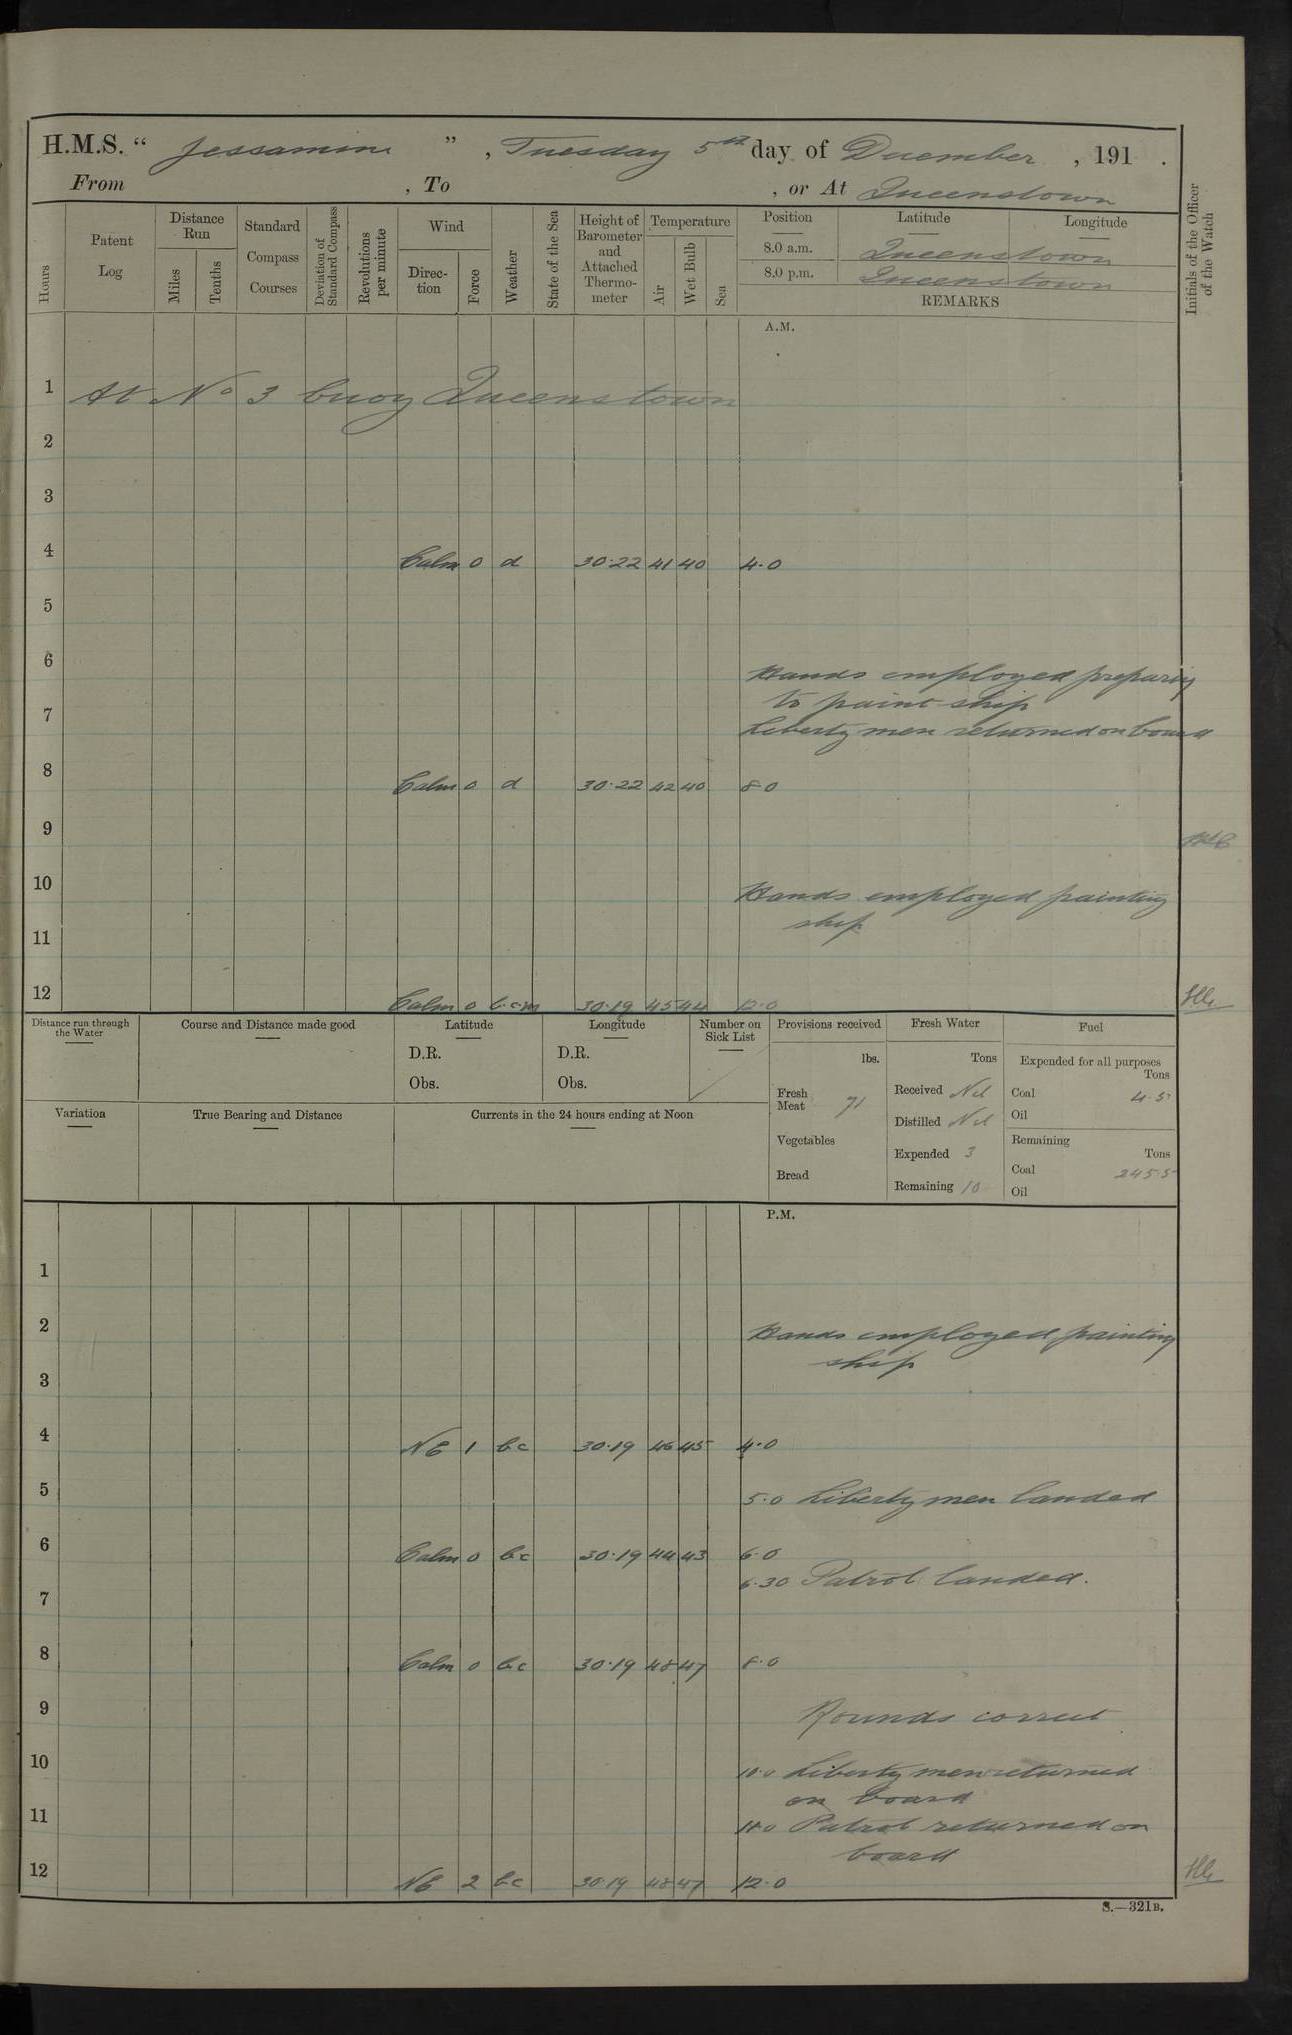 H.M.S. “ Jessamine ” , Tuesday 5th day of December , 191 .
From , To , or At Queenstown
Hours
Patent Log
Distance Run
Miles
Tenths
Standard Compass Courses
Deviation of Standard Compass
Revolutions per minute
Wind
Direc-tion
Force
Weather
State of the Sea
Height of Barometer and Attached Thermo-meter
Temperature
Air
Wet Bulb
Sea
Position Latitude Longitude
8.0 a.m. Queenstown
8.0 p.m. Queenstown
REMARKS
Initials of the Officer of the Watch
A.M.
1 At No 3 buoy Queenstown
2
3
4 Calm 0 d 30.22 41 40 4.0
5
6 Hands employed preparing
to paint ship
7 Liberty men returned on board
8 Calm 0 d 30.22 42 40 8 0
9
10 Hands employed painting
ship
11
12 Calm 0 b.c.m 30.19 45 44 12.0
Distance run through the Water
Course and Distance made good
Latitude
D.R.
Obs.
Longitude
D.R.
Obs.
Number on Sick List
Variation
True Bearing and Distance
Currents in the 24 hours ending at Noon
Provisions received
lbs.
Fresh Meat 71
Vegetables
Bread
Fresh Water
Tons
Received Nil
Distilled Nil
Expended 3
Remaining 10
Fuel
Expended for all purposes
Tons
Coal 4.5
Oil
Remaining
Tons
Coal 245.5
Oil
P.M.
1
2 Hands employed painting
ship
3
4 NE 1 bc 30.19 46 45 4.0
5 5.0 Liberty men landed
6 Calm 0 bc 30.19 44 43 6.0
6.30 Patrol landed.
7
8 Calm 0 bc 30.19 48 47 8.0
9 Rounds correct
10 10.0 Liberty men returned
on board
11 11.0 Patrol returned on
board
12 NE 2 bc 30.19 48 47 12.0
S.—321B.